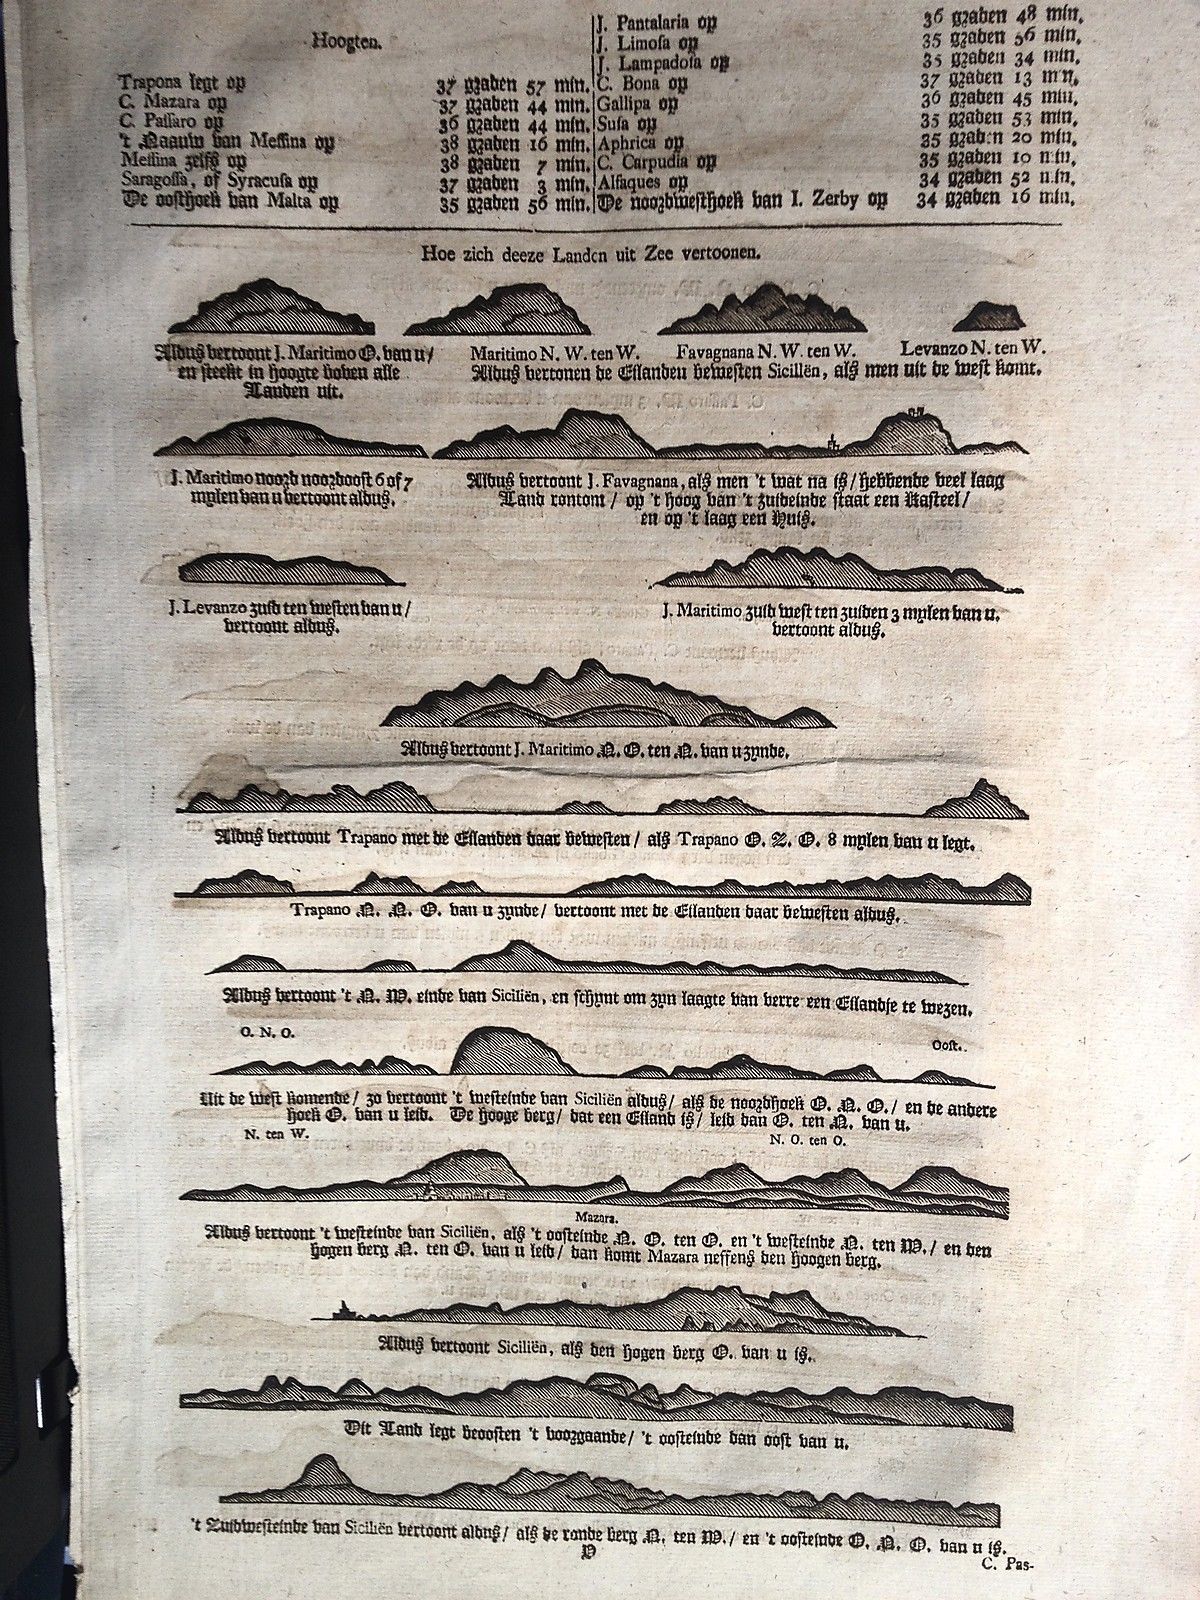 Hoogten.
Trapona legt op 37 graden 57 min.
C. Mazara op 37 graden 44 min.
C. Passaro op 36 graden 44 min.
't Naauw van Messina op 38 graden 16 min.
Messina zelfs op 38 graden 7 min.
Saragossa, of Syracusa op 37 graden 3 min.
De oosthoek van Malta op 35 graden 56 min.
J. Pantalaria op 36 graden 48 min.
J. Limosa op 35 graden 56 min.
J. Lampadosa op 35 graden 34 min.
C. Bona op 37 graden 13 min.
Gallipa op 36 graden 45 min.
Susa op 35 graden 53 min.
Aphrica op 35 graden 20 min.
C. Carpudia op 35 graden 10 min.
Alfaques op 34 graden 52 min.
De noordwesthoek van I. Zerby op 34 graden 16 min.
Hoe zich deeze Landen uit Zee vertoonen.
Aldus vertoont J. Maritimo O. van u/
en steekt in hoogte boven alle
Landen uit.
Maritimo N. W. ten W. Favagnana N. W. ten W. Levanzo N. ten W.
Aldus vertonen de Eilanden bewesten Siciliën, als men uit de west komt.
J. Maritimo noord noordoost 6 of 7
mylen van u vertoont aldus.
Aldus vertoont J. Favagnana, als men 't wat na is/ hebbende veel laag
Land rontom/ op 't hoog van 't zuideinde staat een Kasteel/
en op 't laag een Huis.
J. Levanzo zuid ten westen van u/
vertoont aldus.
J. Maritimo zuid west ten zuiden 3 mylen van u.
vertoont aldus.
Aldus vertoont J. Maritimo N. O. ten N. van u zynde.
Aldus vertoont Trapano met de Eilanden daar bewesten/ als Trapano O. Z. O. 8 mylen van u legt.
Trapano N. N. O. van u zynde/ vertoont met de Eilanden daar bewesten aldus.
Aldus vertoont 't N. W. einde van Siciliën, en schynt om zyn laagte van verre een Eilandje te wezen.
O. N. O. Oost.
Uit de west komende/ zo vertoont 't westeinde van Siciliën aldus/ als de noordhoek O. N. O./ en de andere
hoek O. van u leid. De hooge berg/ dat een Eiland is/ leid dan O. ten N. van u.
N. ten W. N. O. ten O.
Mazara.
Aldus vertoont 't westeinde van Siciliën, als 't oosteinde N. O. ten O. en 't westeinde N. ten W./ en den
hogen berg N. ten O. van u leid/ dan komt Mazara neffens den hoogen berg.
Aldus vertoont Siciliën, als den hogen berg O. van u is.
Dit Land legt beoosten 't voorgaande/ 't oosteinde van oost van u.
't Zuidwesteinde van Siciliën vertoont aldus/ als de ronde berg N. ten W./ en 't oosteinde O. N. O. van u is.
C. Pas-